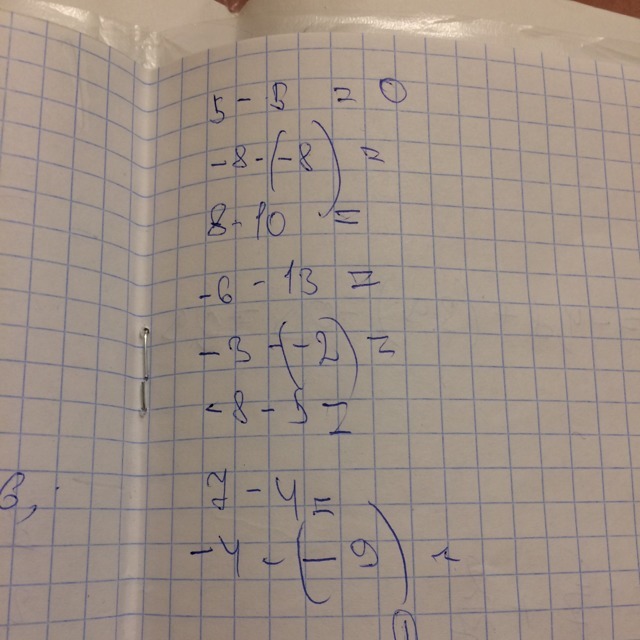 5 - 5 = 0
-8-(-8) =
8-10 =
-6 - 13 =
-3 -(-2) =
-8 - 5 =
7 - 4 =
-4 - (-9) =